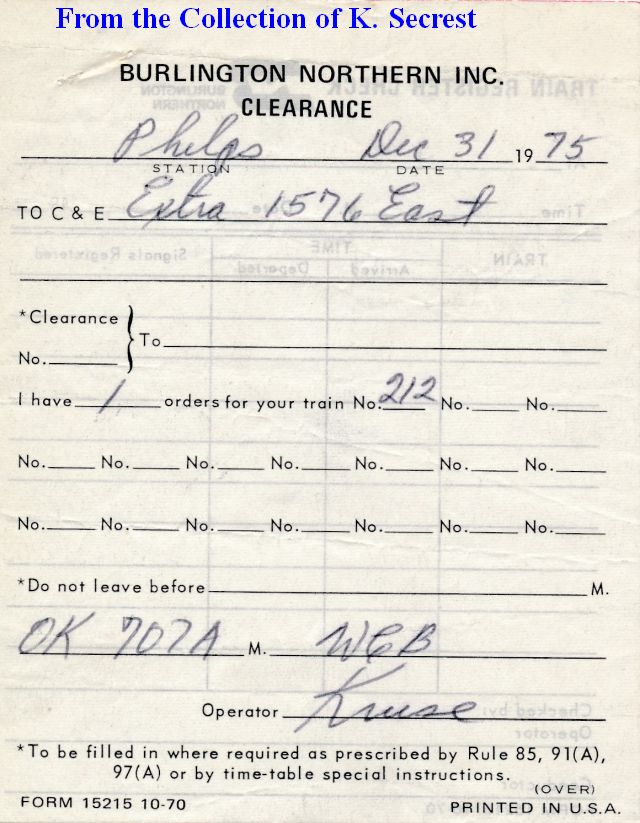 From the Collection of K. Secrest
BURLINGTON NORTHERN INC.
CLEARANCE
Phelps Dec 31 19 75
STATION DATE
TO C & E Extra 1576 East
*Clearance
No. To
I have 1 orders for your train No. 212 No. No.
No. No. No. No. No. No. No.
No. No. No. No. No. No. No.
*Do not leave before M.
OK 707A M. WCB
Operator Kruse
*To be filled in where required as prescribed by Rule 85, 91(A),
97(A) or by time-table special instructions.
(OVER)
FORM 15215 10-70 PRINTED IN U.S.A.